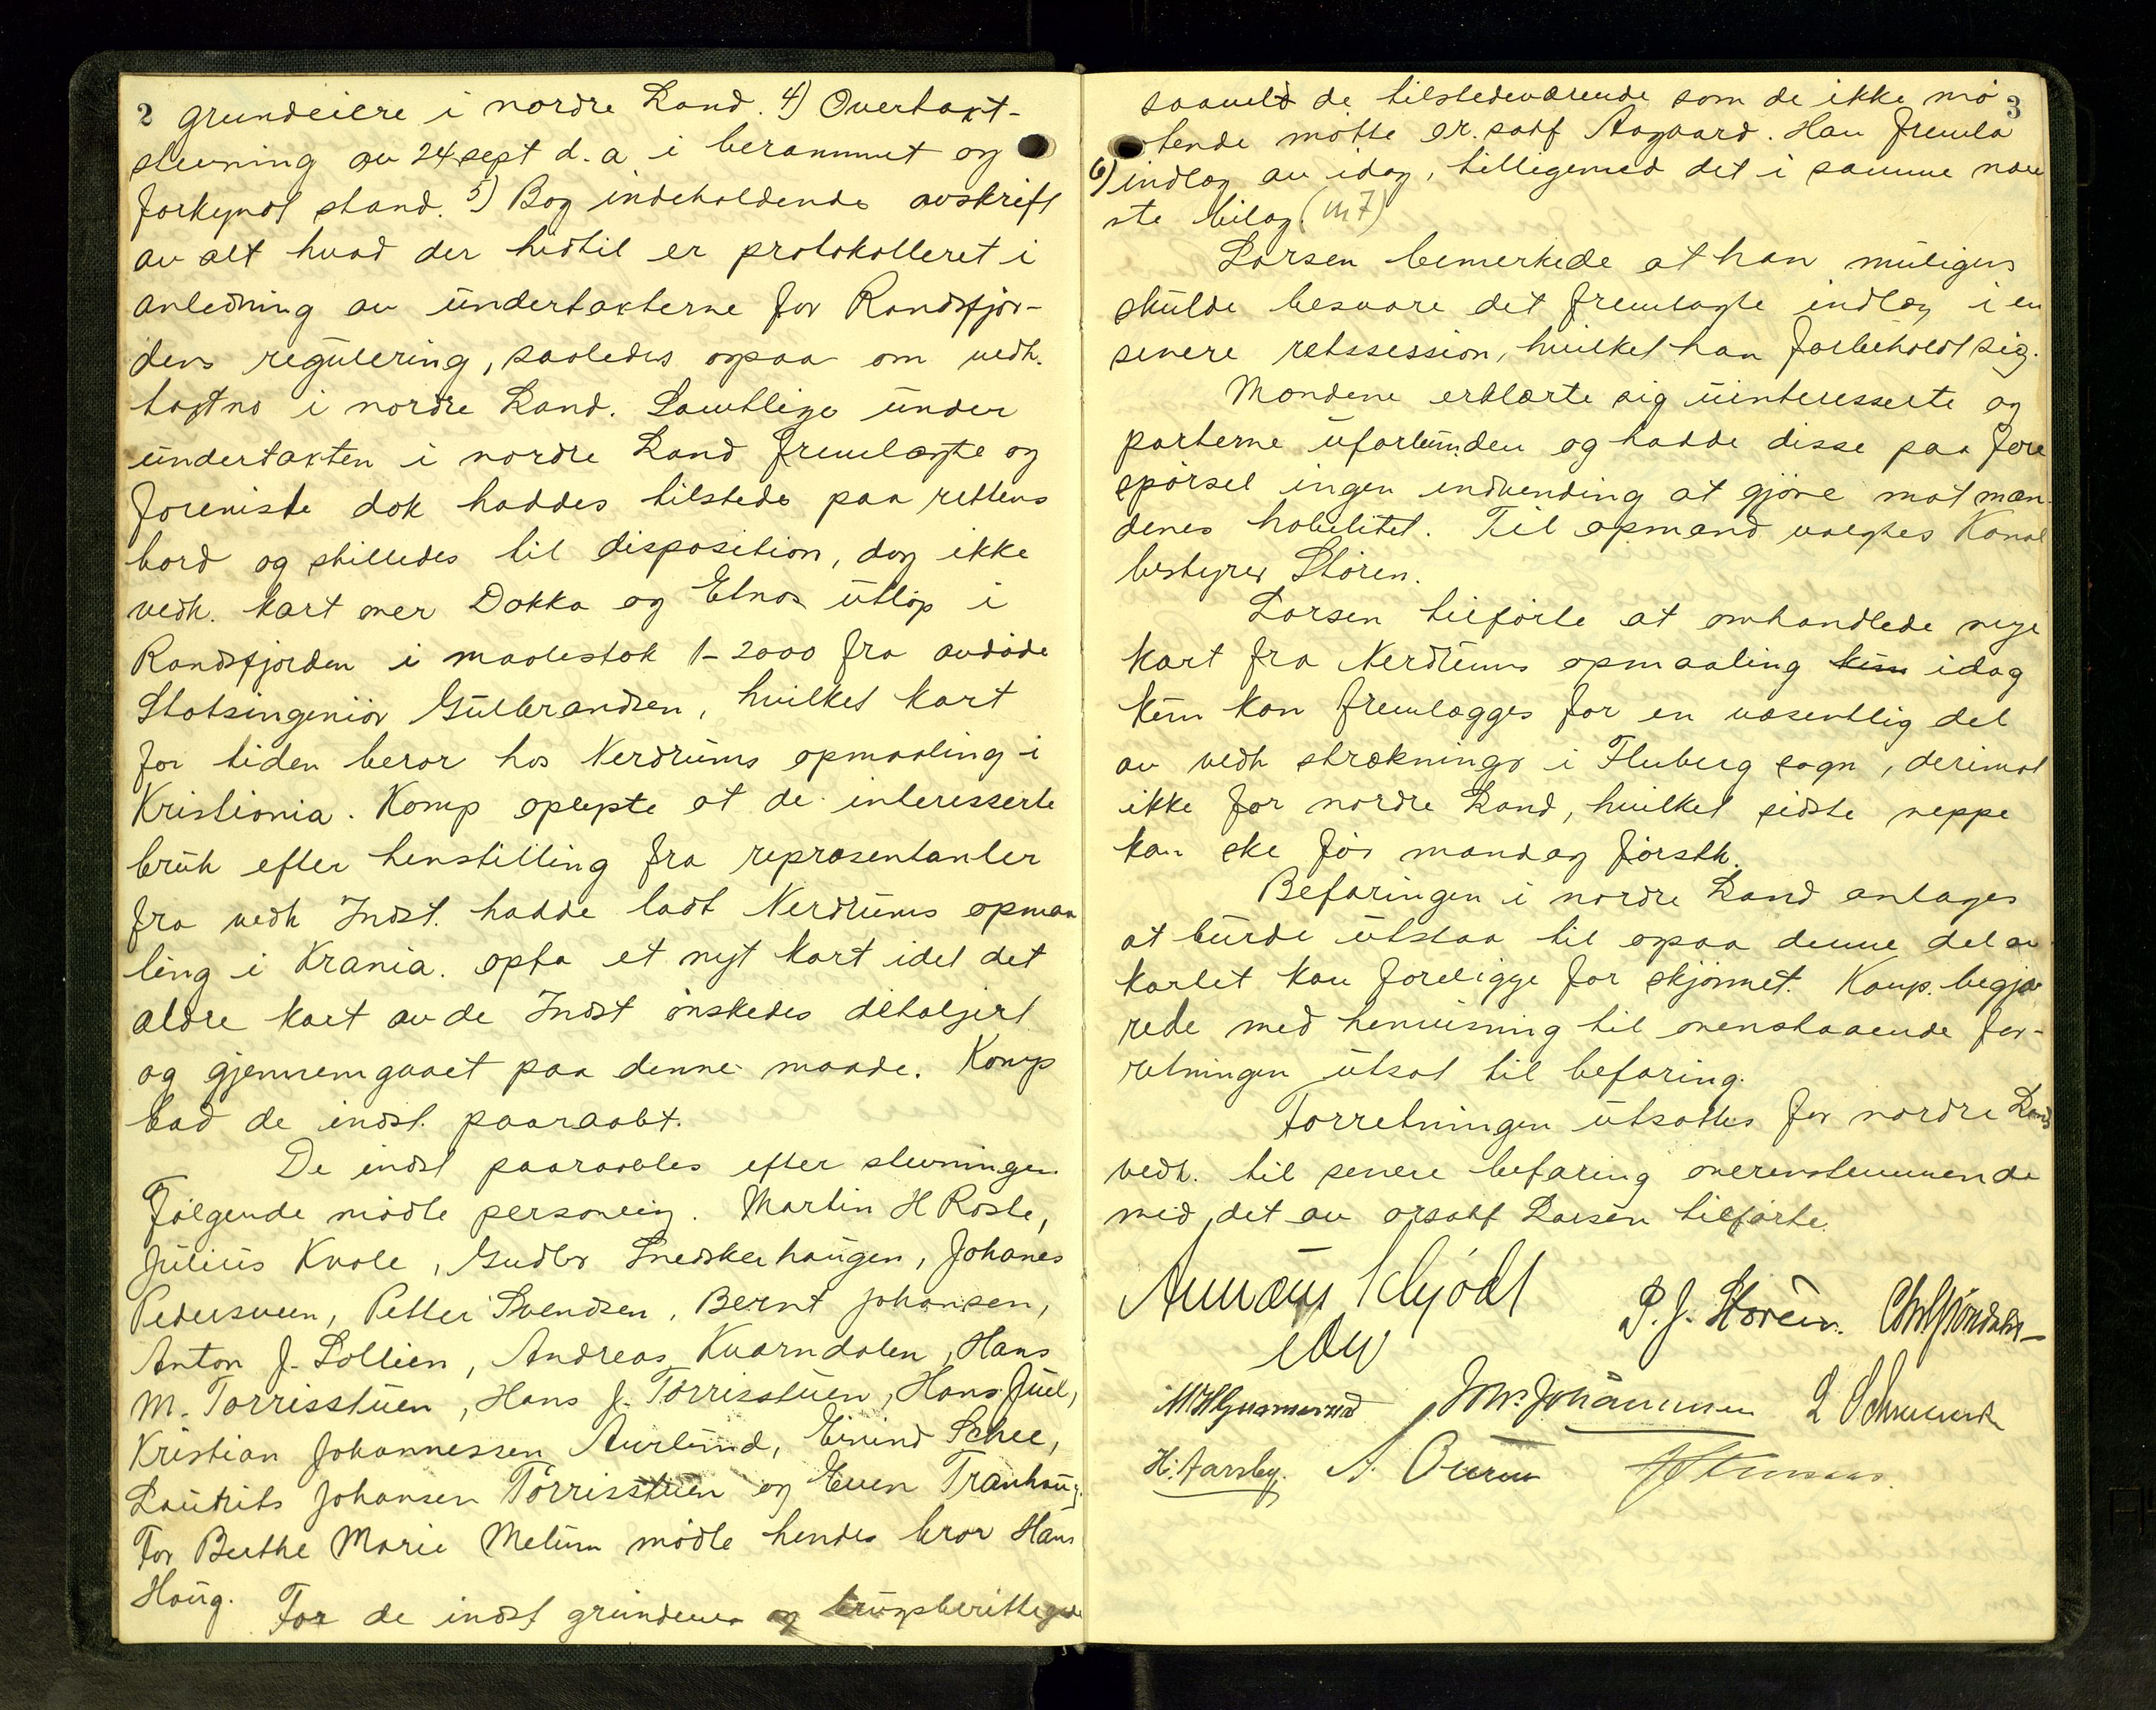 2 grundeiere i nordre Land. 4) Overtakst-
stevning av 24 sept d.a i berammet og
forkyndt stand. 5) Bog indeholdende avskrift
av alt hvad der hidtil er protokolleret i
anledning av undertaksterne for Randsfjor-
dens regulering, saaledes ogsaa om vedk.
takstno i nordre Land. Samtlige under
undertaksten i nordre Land fremlagte og
foreviste dok haddes tilstede paa rettens
bord og stilledes til disposition, dog ikke
vedk. kart over Dokka og Etnas utløp i
Randsfjorden i maalestok 1-2000 fra avdøde
Statsingeniør Gulbrandsen, hvilket kart
for tiden beror hos Nerdrums opmaaling i
Kristiania. Komp oplyste at de interesserte
bruk efter henstilling fra repræsentanter
fra vedk Indst. hadde ladt Nerdrums opmaa
ling i Krania. opta et nyt kart idet det
ældre kart av de Indst ønskedes detaljert
og gjennemgaaet paa denne maade. Komp
bad de indst. paaraabt.
De indst paaraabtes efter stevningen.
Følgende mødte personlig. Martin H Roste,
Julius Kvale, Gudbr Snedskerhaugen, Johanes
Pedersveen, Petter Svendsen, Bernt Johansen,
Anton J. Sollien, Andreas Kvarndalen, Hans
M. Torrisstuen, Hans J. Torrisstuen, Hans Juel,
Kristian Johannessen Aurlund, Eivind Schee,
Lauritz Johansen Törrisstuen og Even Tranhaug.
For Berthe Marie Melum mødte hendes bror Hans
Haug. For de indst grundeiere og brugsberettigede
3
saavel de tilstedeværende som de ikke mø
tende møtte or. sakf Aagaard. Han fremla
6) indlæg av idag, tilligemed det i samme næv
nte bilag. (nr 7)
Larsen bemerkede at han muligens
skulde besvare det fremlagte indlæg i en
senere retssession, hvilket han forbeholdt sig.
Mændene erklærte sig uinteresserte og
parterne uforbunden og hadde disse paa fore
spørsel ingen indvending at gjøre mot mæn
denes habilitet. Til opmand valgtes Kanal
bestyrer Støren.
Larsen tilførte at omhandlede nye
kart fra Nerdrums opmaaling kun idag
kun kan fremlægges for en væsentlig del
av vedk strækninger i Fluberg sogn, derimot
ikke for nordre Land, hvilket sidste neppe
kan ske før mandag førstk.
Befaringen i nordre Land antages
at burde utstaa til ogsaa denne del av
kartet kan foreligge for skjønnet. Komp. begjæ
rede med henvisning til ovenstaaende for-
retningen utsat til befaring.
Forretningen utsattes for nordre Land
vedk. til senere befaring overensstemmende
med det av orsakf Larsen tilførte.
Annæus Schjødt
P. J. Støren.
Johs. Johannessen
H. Aarsby. A.